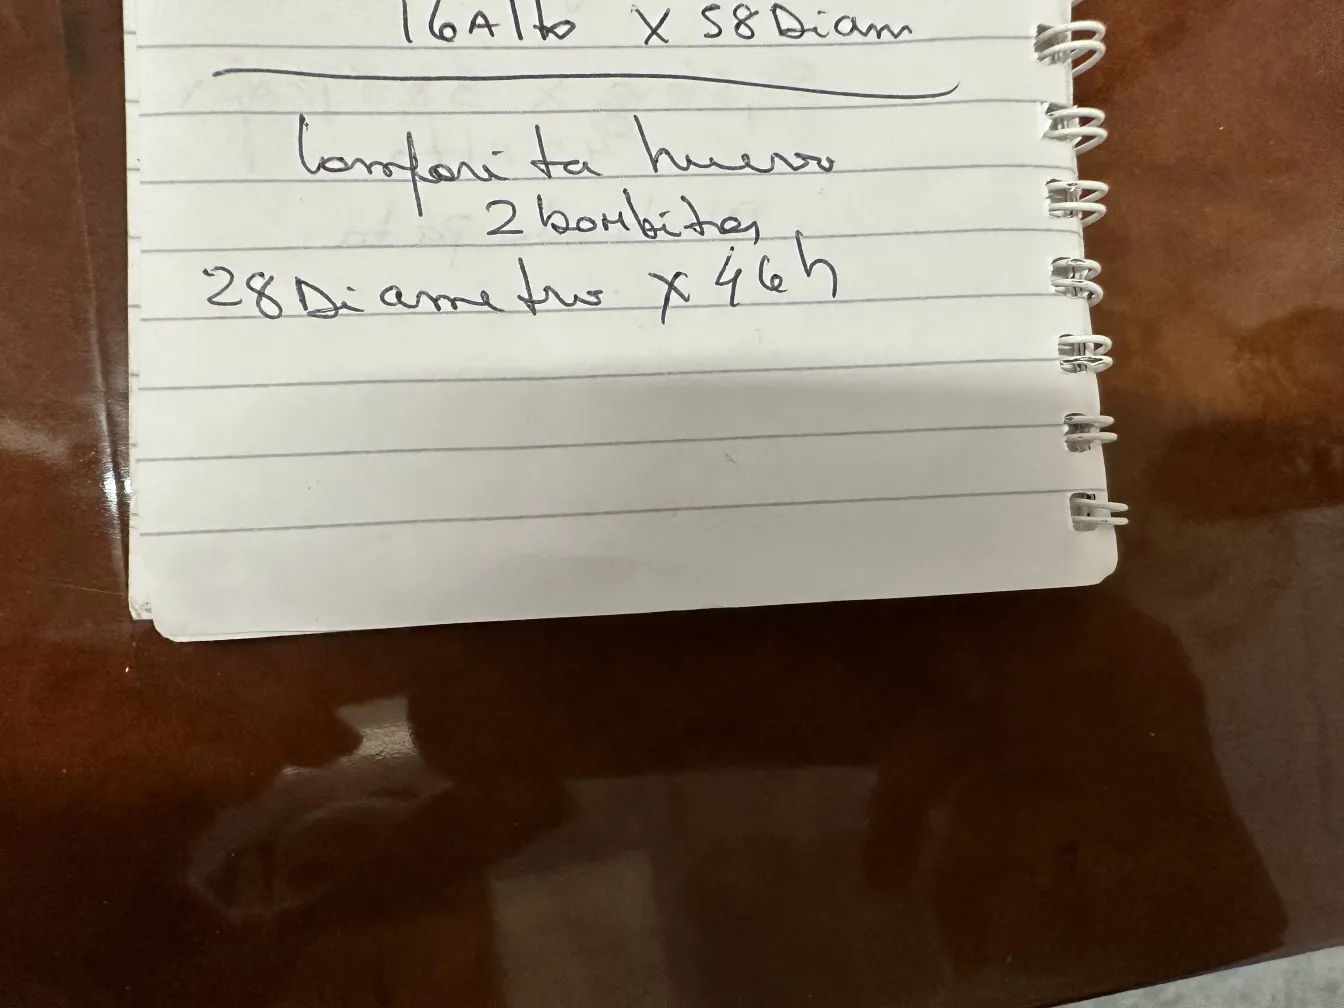 16 Alto X 58 Diam
Lamparita huevo
2 bombitas
28 Diametro X 46h